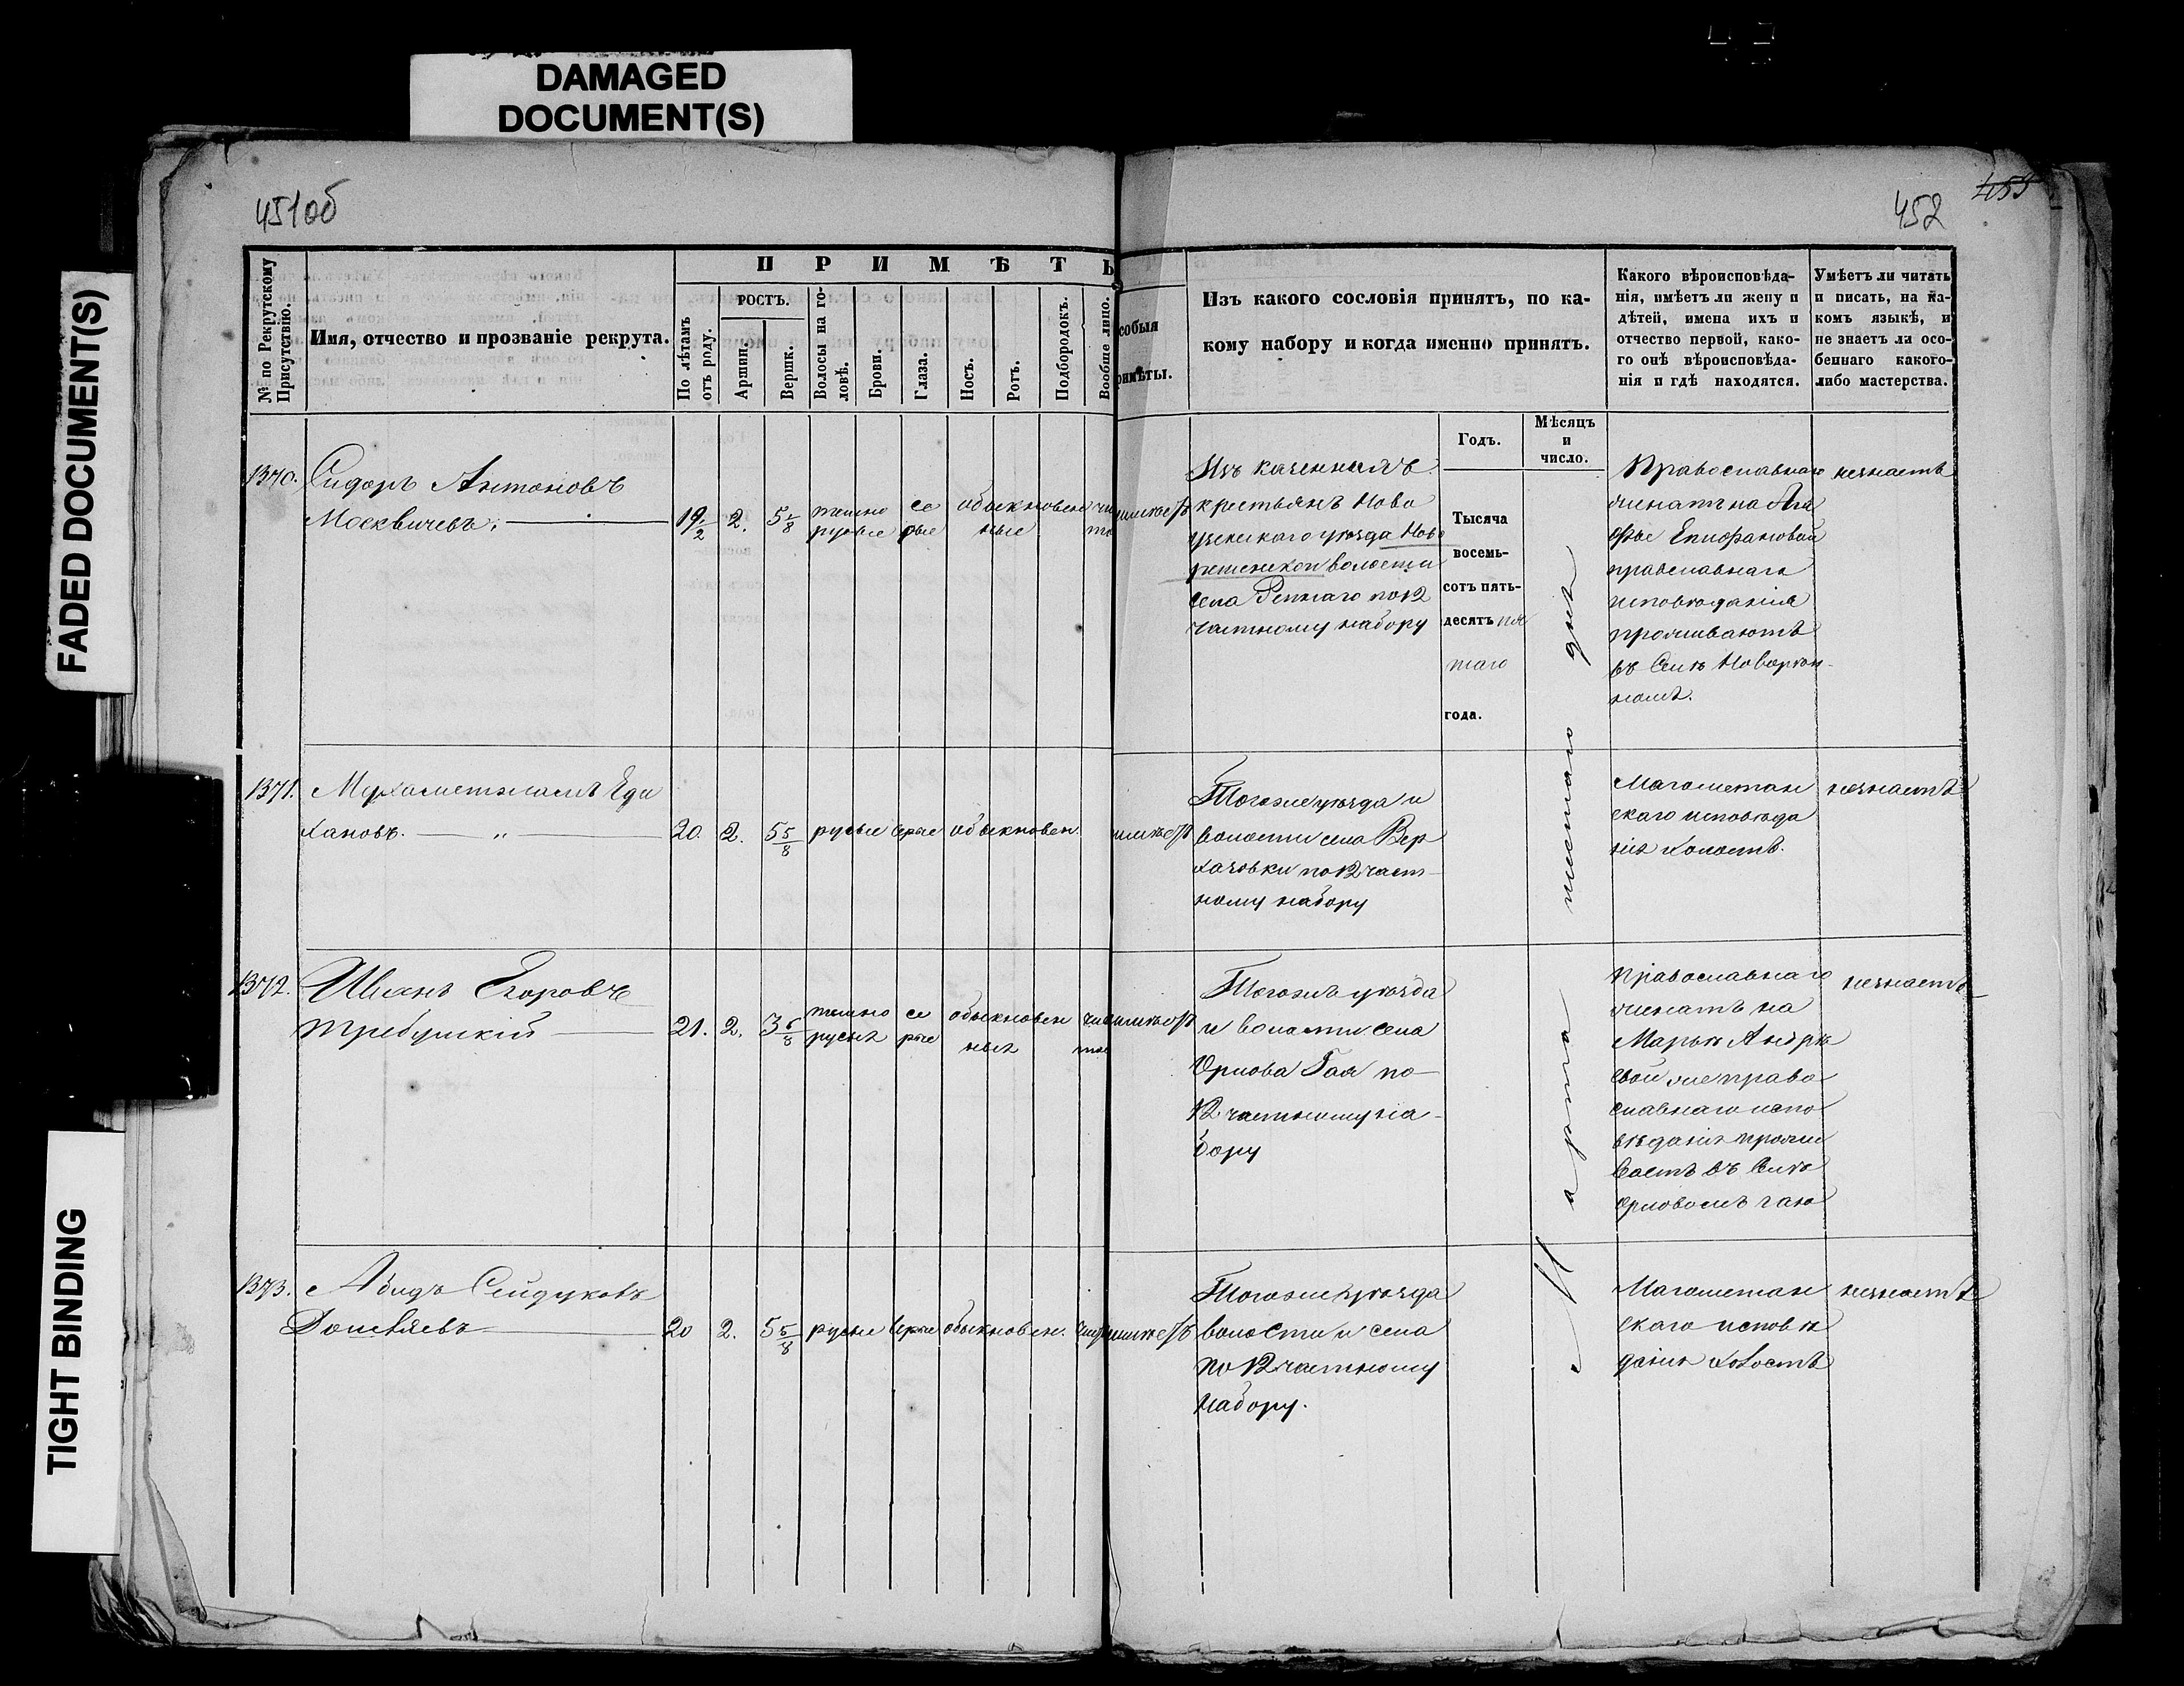 DAMAGED
DOCUMENT(S)
FADED DOCUMENT(S)
TIGHT BINDING
451об
452
№ по Рекрутскому
Присутствію.
Имя, отчество и прозваніе рекрута.
ПРИМѢТЫ
По лѣтамъ
отъ роду.
РОСТЪ.
Аршин.
Вершк.
Волосы на го-
ловѣ.
Брови.
Глаза.
Носъ.
Ротъ.
Подбородокъ.
Вообще лицо.
собыя
римѣты.
Изъ какого сословія принятъ, по ка-
кому набору и когда именно принятъ.
Какого вѣроисповѣда-
нія, имѣетъ ли жену и
дѣтей, имена ихъ и
отчество первой, како-
го онѣ вѣроисповѣда-
нія и гдѣ находятся.
Умѣетъ ли читать
и писать, на ка-
комъ языкѣ, и
не знаетъ ли осо-
беннаго какого-
либо мастерства.
Годъ.
Мѣсяцъ
и
число.
1370.
Сидоръ Антоновъ
Москвичевъ.
19 1/2
2.
темно
русые
се
рые
обыкновен
ные
чис
то
имѣетъ
Изъ казенныхъ
крестьянъ Ново
узенскаго уѣзда Ново
репенской волости
села Репнаго по 12
частному набору
Тысяча
восемь-
сотъ пять-
десятъ пя
таго
года.
шестаго дня
Марта
Православнаго
женатъ на Ага
фье Епифановой
православнаго
исповѣданія
проживаютъ
въ Селѣ Новорѣп-
номъ.
незнаетъ
1371.
Мухаметжамъ Еди
хановъ. — „ —
20.
2.
5 5/8
русые
серые
обыкновен.
имѣетъ
Тогоже уѣзда и
волости села Вер
хазовки по 12 част-
ному набору
Магометан
скаго исповѣда
нія холостъ.
незнаетъ
1372.
Иванъ Егоровъ
Требушкій
21.
2.
3 6/8
темно
русые
се
рые
обыкновен
ные
чис
тое
имѣетъ
Тогожъ уѣзда
и волости села
Орлова Гая по
12 частному на-
бору
Православнаго
женатъ на
Марьѣ Андрѣ
евой же право
славнаго испо
вѣданія прожи
ваетъ въ Селѣ
Орловомъ гаю
незнаетъ
1373.
Абидъ Сейдуковъ
20
2.
5 5/8
русые
серые
обыкновен.
чис
имѣетъ
Тогоже уѣзда
волости и села
по 12 частному
набору.
Магометан
скаго исповѣ
данія холостъ
незнаетъ